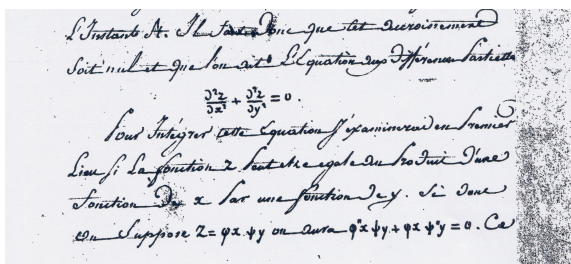 L'Instant A. Il faut donc que cet accroissement
soit nul et que l'on ait L'Equation aux différences Partielles
∂²z/∂x² + ∂²z/∂y² = 0.
Pour Intégrer cette Equation J'examinerai en Premier
Lieu si La fonction z Peut etre egale au Produit d'une
fonction de x Par une fonction de y. Si donc
on Suppose Z = φx.ψy on aura φ"x ψy + φx ψ"y = 0. Ce